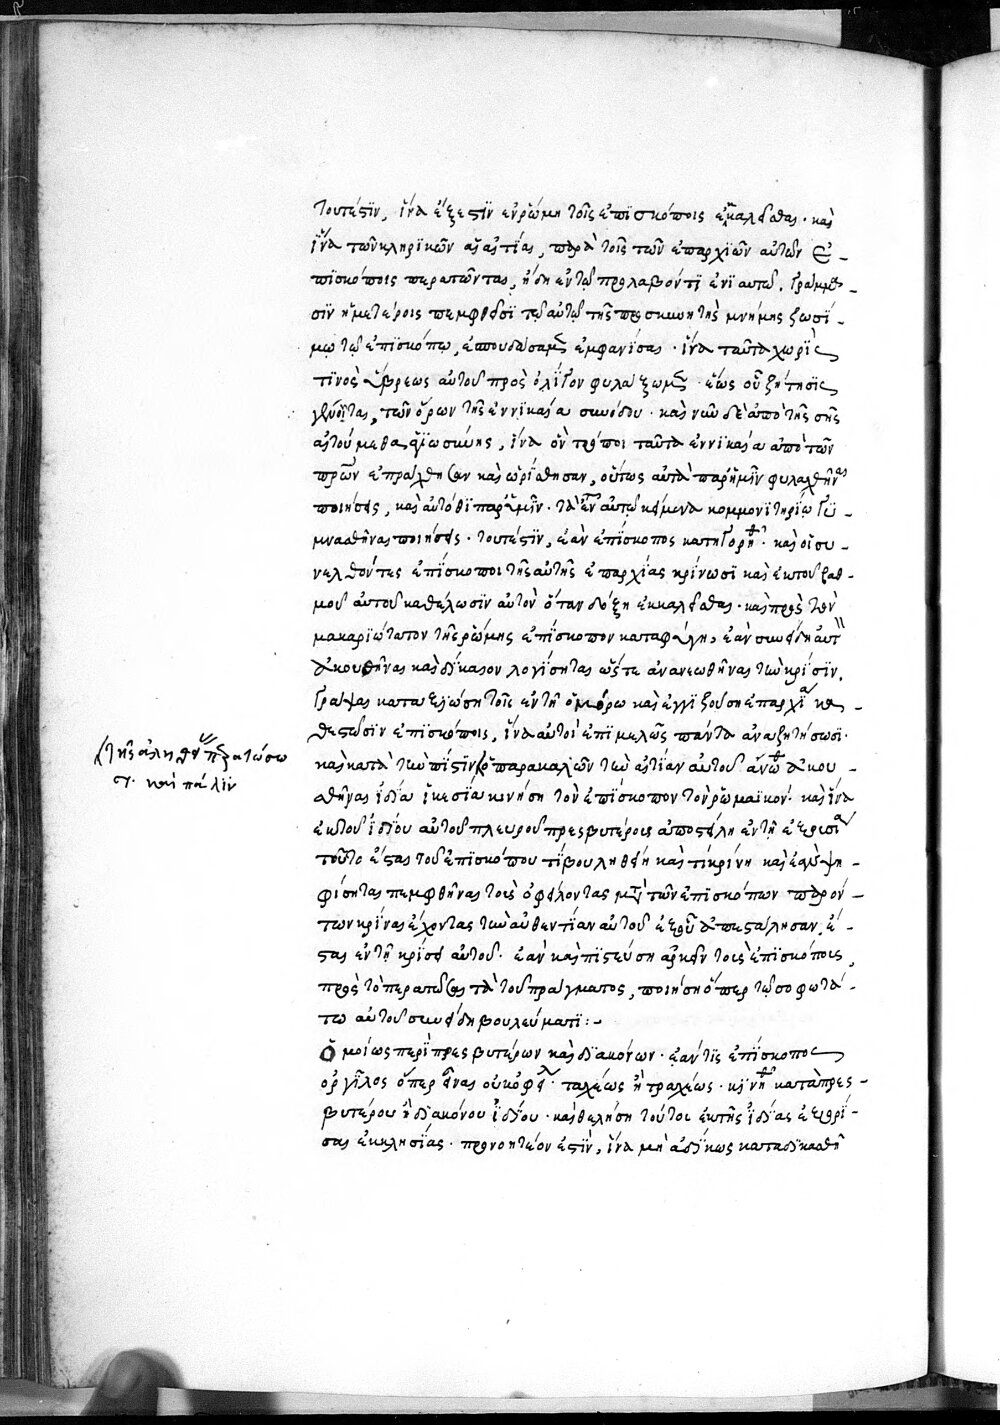 τουτέστιν, ἵνα ἔξεστιν ἐν ῥώμῃ τοῖς ἐπισκόποις ἐκκαλεῖσθαι· καὶ
ἵνα τῶν κληρικῶν αἱ αἰτίαι, παρὰ τοῖς τῶν ἐπαρχιῶν αὐτῶν ἐ-
πισκόποις περατῶνται, ἤδη ἐν τῷ προλαβόντι ἐνιαυτῷ, γράμμα-
σιν ἡμετέροις πεμφθεῖσι τῷ αὐτῷ τῆς προσκυνητῆς μνήμης ζωσί-
μῳ τῷ ἐπισκόπῳ, ἐσπουδάσαμεν ἐμφανίσαι· ἵνα ταῦτα χωρίς
τινος ὕβρεως αὐτοῦ πρὸς ὀλίγον φυλάξωμεν· ἕως οὗ ζήτησις
γένηται, τῶν ὅρων τῆς ἐν νικαίᾳ συνόδου· καὶ νῦν δὲ ἀπὸ τῆς σῆς
αἰτούμεθα ἁγιωσύνης, ἵνα ὃν τρόπον ταῦτα ἐν νικαίᾳ ἀπὸ τῶν
πρων ἐπράχθησαν καὶ ὡρίσθησαν, οὕτως αὐτὰ παρ' ἡμῖν φυλαχθῆναι
ποιήσῃς, καὶ αὐτόθι παρ' ὑμῖν· τὰ ἐν αὐτῷ κείμενα κομμονιτηρίῳ γυ-
μνασθῆναι ποιήσεις· τουτέστιν, ἐὰν ἐπίσκοπος κατηγορηθῇ· καὶ οἱ συ-
νελθόντες ἐπίσκοποι τῆς αὐτῆς ἐπαρχίας κρίνωσι καὶ ἐκ τοῦ βαθ-
μοῦ αὐτοῦ καθέλωσιν αὐτὸν ὅταν δόξῃ ἐκκαλεῖσθαι· καὶ πρὸς τὸν
μακαριώτατον τῆς ῥώμης ἐπίσκοπον καταφύγῃ, ἐὰν συνείδῃ αὐτ
ἀκουσθῆναι καὶ δίκαιον λογίσηται ὥστε ἀνανεωθῆναι τὴν κρίσιν,
γράψαι καταξιώσῃ τοῖς ἐν τῇ ὁμόρῳ καὶ ἐγγιζούσῃ ἐπαρχίᾳ κα-
θεστῶσιν ἐπισκόποις, ἵνα αὐτοὶ ἐπιμελῶς πάντα ἀναζητήσωσι·
καὶ κατὰ τὴν πίστιν ὁ παρακαλῶν τὴν αἰτίαν αὐτοῦ ἄνωθεν ἀκου-
σθῆναι ἰδίᾳ ἱκεσίᾳ κινήσῃ τὸν ἐπίσκοπον τὸν ῥωμαϊκόν· καὶ ἵνα
ἐκ τοῦ ἰδίου αὐτοῦ πλευροῦ πρεσβυτέρους ἀποστείλῃ ἐν τῇ ἐξουσίᾳ
τοῦτο ἔσται τοῦ ἐπισκόπου τί βουληθείη καὶ τί κρίνῃ καὶ ἐὰν ψη-
φίσηται πεμφθῆναι τοὺς ὀφείλοντας μετὰ τῶν ἐπισκόπων παρόν-
των κρῖναι ἔχοντας τὴν αὐθεντίαν αὐτοῦ ἐξ οὗ ἀπεστάλησαν, ἔ-
σται ἐν τῇ κρίσει αὐτοῦ· ἐὰν καὶ πιστεύσῃ ἀρκεῖν τοῖς ἐπισκόποις,
πρὸς τὸ περατῶσαι τὰ τοῦ πράγματος, ποιήσῃ ὅπερ τῷ σοφωτά-
τῳ αὐτοῦ συνείδῃ βουλεύματι:-
Ὁμοίως περὶ πρεσβυτέρων καὶ διακόνων· ἐάν τις ἐπίσκοπος
ὀργίλος ὅπερ εἶναι οὐκ ὀφείλει· ταχέως ἢ τραχέως· κινηθῇ κατὰ πρεσ-
βυτέρου ἢ διακόνου ἰδίου· καὶ θελήσῃ τοῦτον ἐκ τῆς ἰδίας ἐξορί-
σαι ἐκκλησίας· προνοητέον ἐστίν, ἵνα μὴ ἀδίκως καταδικασθῇ
καὶ πάλιν